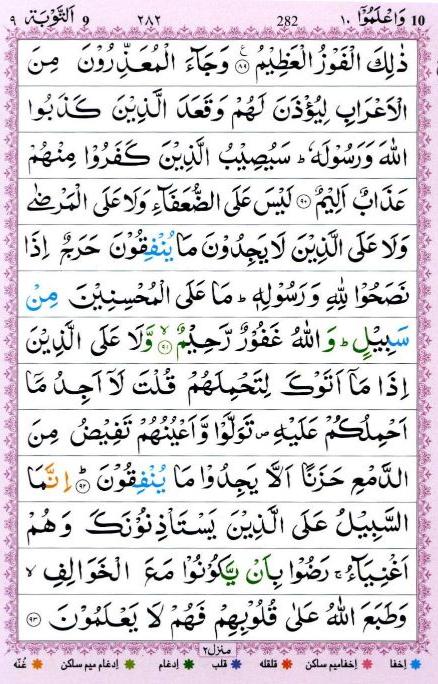 10 وَاعْلَمُوْۤا ١٠ 282 ٢٨٢ 9 اَلتَّوْبَة ٩
ذٰلِكَ الْفَوْزُ الْعَظِيْمُ ﴿٨٩﴾ وَجَآءَ الْمُعَذِّرُوْنَ مِنَ
الْاَعْرَابِ لِيُؤْذَنَ لَهُمْ وَقَعَدَ الَّذِيْنَ كَذَبُوا
اللهَ وَرَسُوْلَهٗ ؕ سَيُصِيْبُ الَّذِيْنَ كَفَرُوْا مِنْهُمْ
عَذَابٌ اَلِيْمٌ ﴿٩٠﴾ لَيْسَ عَلَى الضُّعَفَآءِ وَلَا عَلَى الْمَرْضٰى
وَلَا عَلَى الَّذِيْنَ لَا يَجِدُوْنَ مَا يُنْفِقُوْنَ حَرَجٌ اِذَا
نَصَحُوْا لِلّٰهِ وَرَسُوْلِهٖ ؕ مَا عَلَى الْمُحْسِنِيْنَ مِنْ
سَبِيْلٍ ؕ وَاللهُ غَفُوْرٌ رَّحِيْمٌ ﴿٩١﴾ ۙ وَّلَا عَلَى الَّذِيْنَ
اِذَا مَاۤ اَتَوْكَ لِتَحْمِلَهُمْ قُلْتَ لَاۤ اَجِدُ مَاۤ
اَحْمِلُكُمْ عَلَيْهِ ۪ تَوَلَّوْا وَّاَعْيُنُهُمْ تَفِيْضُ مِنَ
الدَّمْعِ حَزَنًا اَلَّا يَجِدُوْا مَا يُنْفِقُوْنَ ﴿٩٢﴾ ؕ اِنَّمَا
السَّبِيْلُ عَلَى الَّذِيْنَ يَسْتَاْذِنُوْنَكَ وَهُمْ
اَغْنِيَآءُ ۚ رَضُوْا بِاَنْ يَّكُوْنُوْا مَعَ الْخَوَالِفِ ۙ
وَطَبَعَ اللهُ عَلٰى قُلُوْبِهِمْ فَهُمْ لَا يَعْلَمُوْنَ ﴿٩٣﴾
منزل ٢
اخفا اخفامیم ساکن قلقله قلب ادغام ادغام میم ساکن غنّه